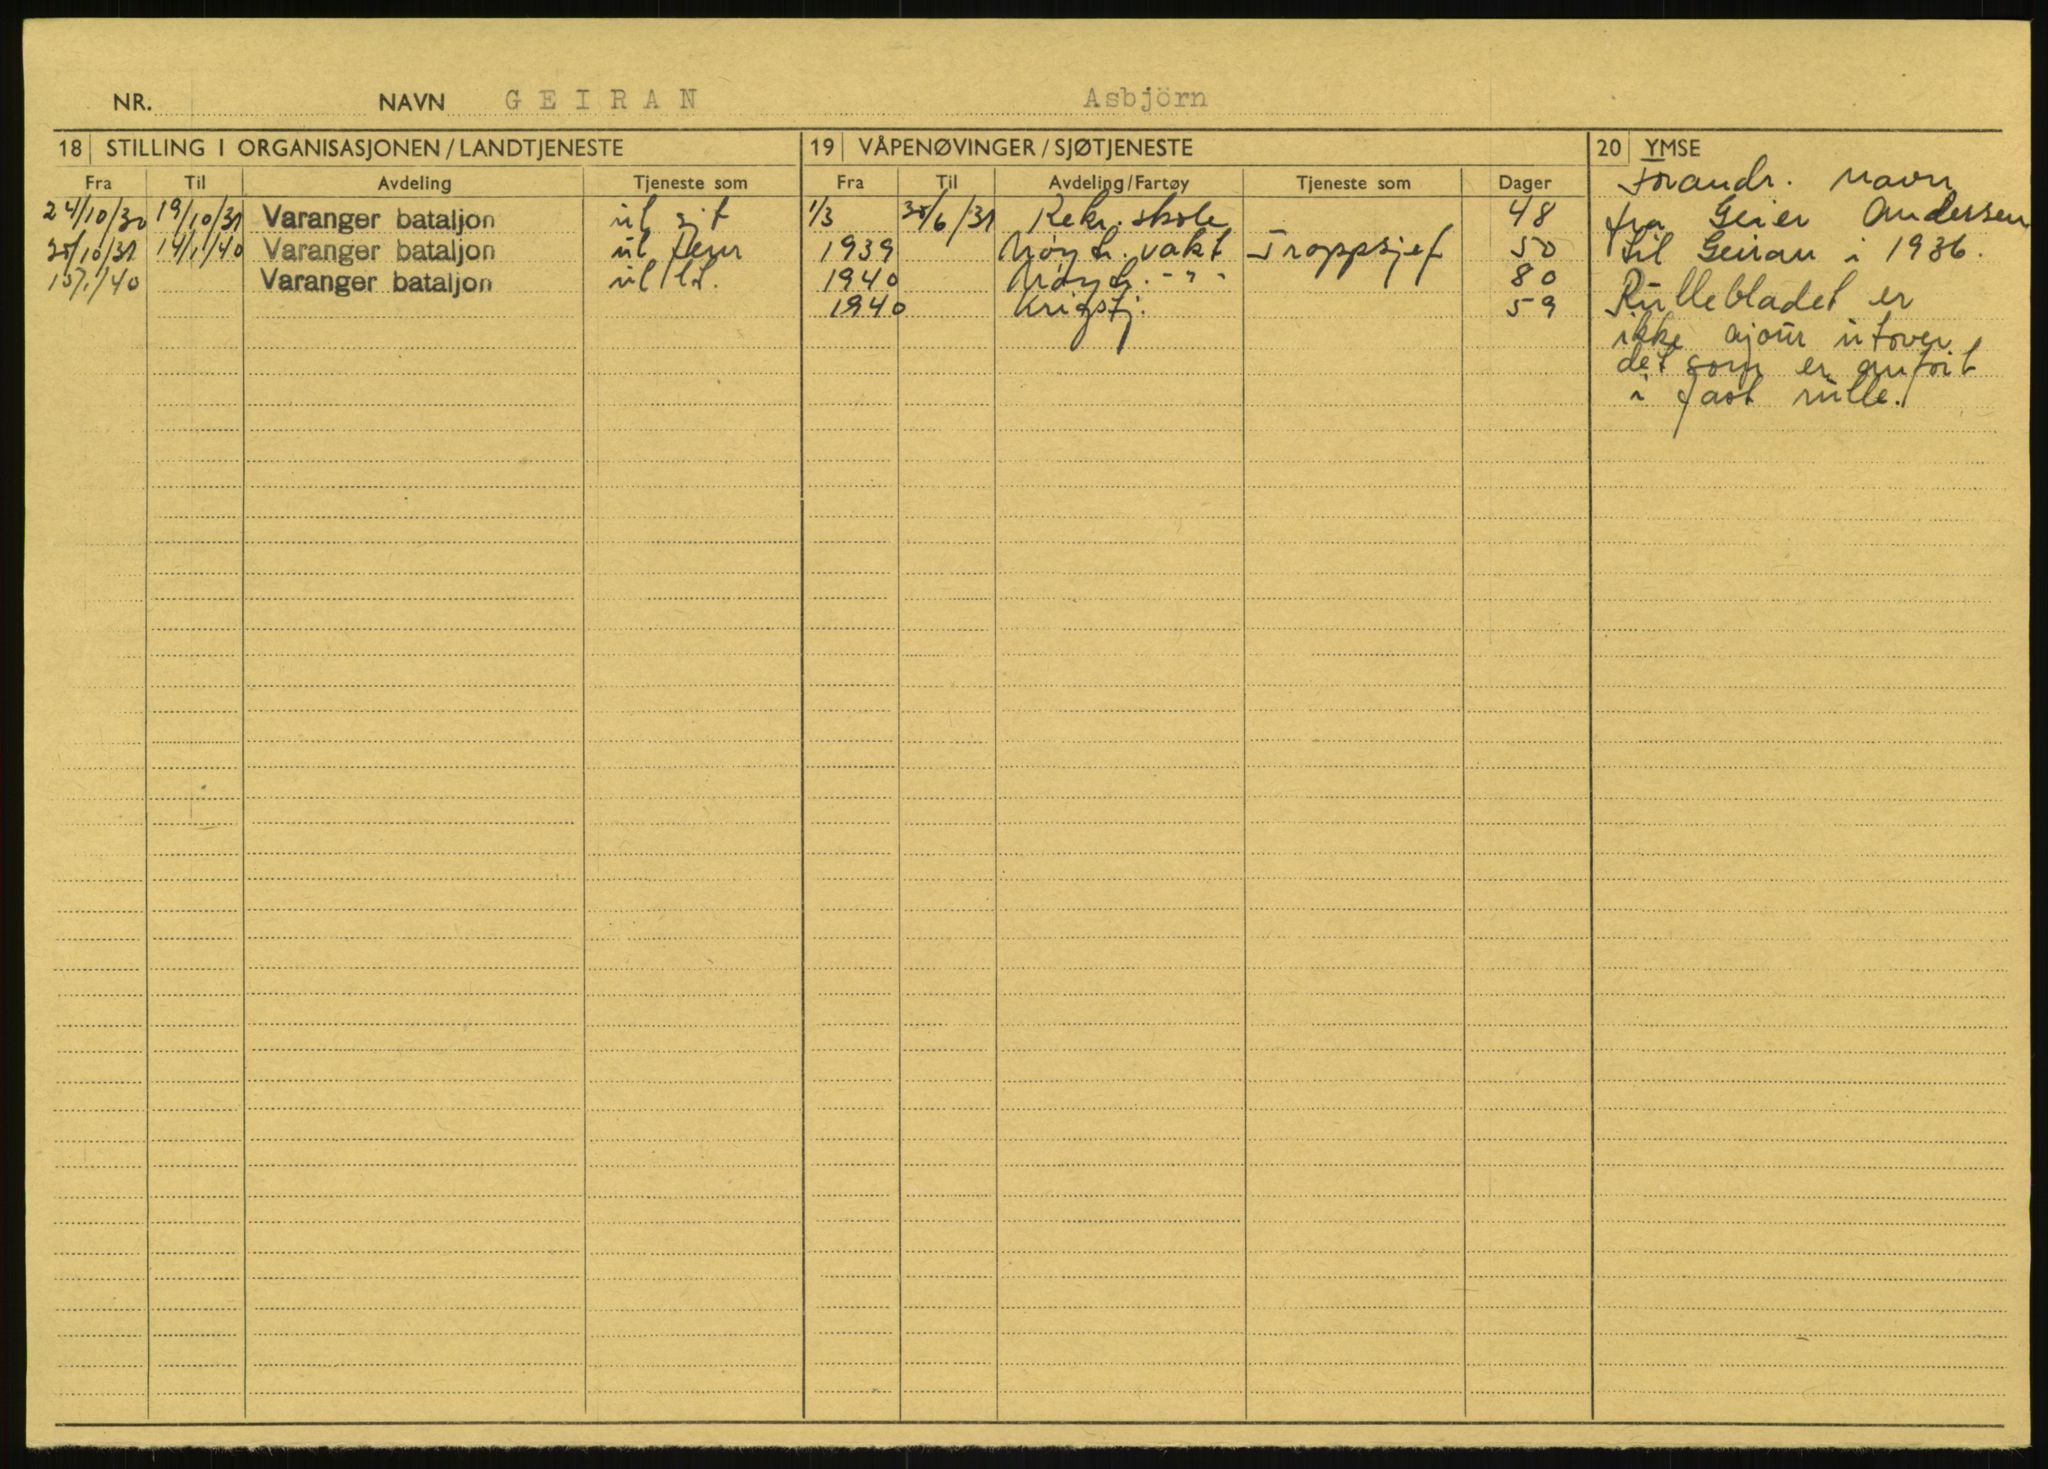 NR. NAVN GEIRAN Asbjörn
18 STILLING I ORGANISASJONEN/LANDTJENESTE 19 VÅPENØVINGER/SJØTJENESTE 20 YMSE
Fra Til Avdeling Tjeneste som Fra Til Avdeling/Fartøy Tjeneste som Dager
Forandr. navn
24/10/30 19/10/31 Varanger bataljon ut sjt 1/3 30/6/31 Rekr. skole 48 fra Geier Andersen
20/10/31 14/1/40 Varanger bataljon ut fenr 1939 Nøytr. vakt Troppsjef 50 til Geiran i 1936.
15/1/40 Varanger bataljon ut lt. 1940 Nøytr. - " - 80 Rullebladet er
1940 Krigstj. 59
ikke ajour utover
det som er anført
i fast rulle.